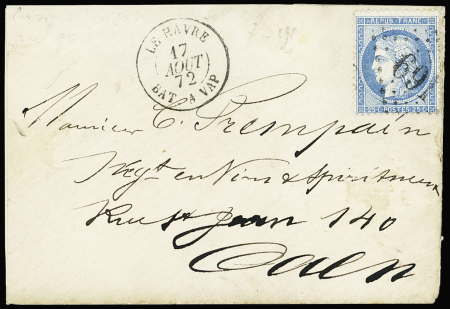 LE HAVRE
17
AOUT
72
BAT. A VAP
REPUB. FRANC.
25 C 25 C
69
Monsieur C. Trempain
Negt en Vins & Spiritueux
Rue St Jean 140
Caen